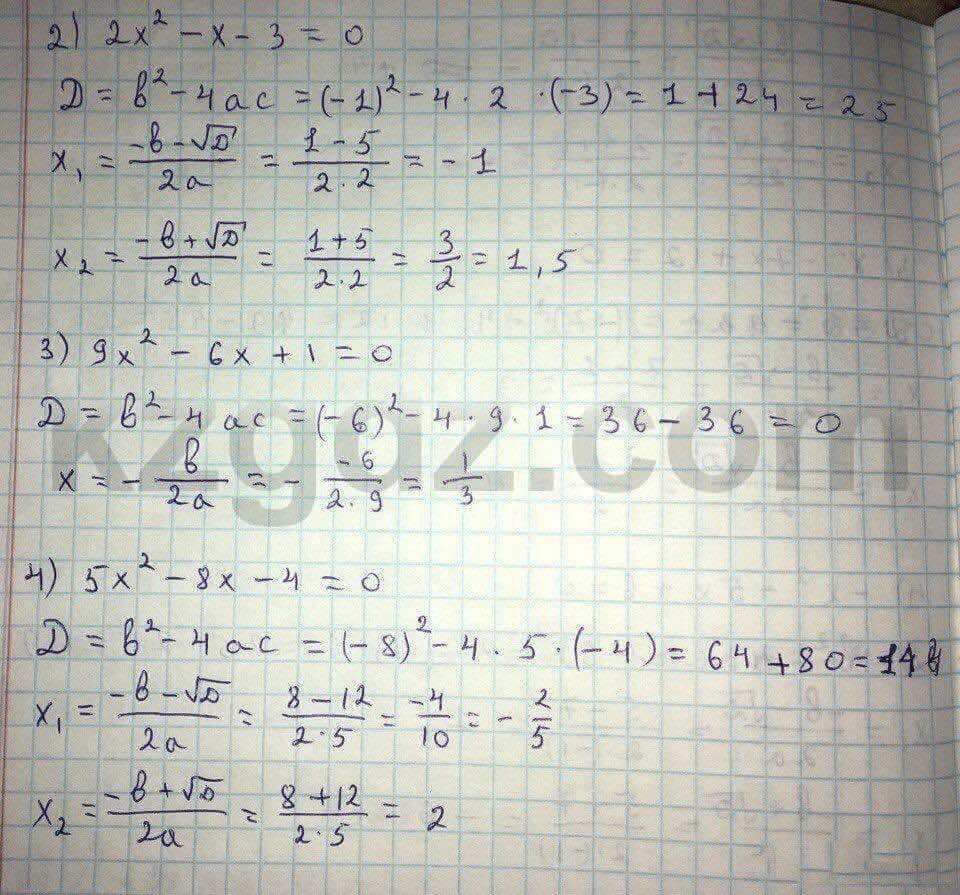 2) 2x² - x - 3 = 0
D = b² - 4ac = (-1)² - 4 · 2 · (-3) = 1 + 24 = 25
x₁ = (-b - √D)/(2a) = (1 - 5)/(2 · 2) = -1
x₂ = (-b + √D)/(2a) = (1 + 5)/(2 · 2) = 3/2 = 1,5
3) 9x² - 6x + 1 = 0
D = b² - 4ac = (-6)² - 4 · 9 · 1 = 36 - 36 = 0
kzgdz.com
x = - b/(2a) = - (-6)/(2 · 9) = 1/3
4) 5x² - 8x - 4 = 0
D = b² - 4ac = (-8)² - 4 · 5 · (-4) = 64 + 80 = 144
x₁ = (-b - √D)/(2a) = (8 - 12)/(2 · 5) = -4/10 = - 2/5
x₂ = (-b + √D)/(2a) = (8 + 12)/(2 · 5) = 2